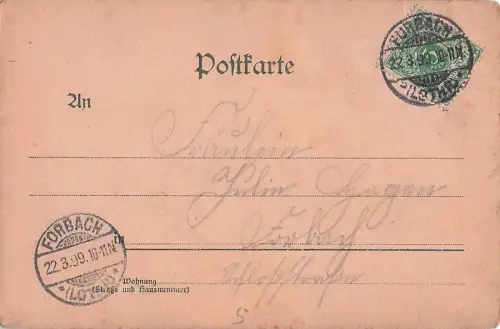 Postkarte
FORBACH
22.3.99.10-11N.
*(LOTHR)*
An
Fräulein
Julie Hagen
Forbach
in
Schloßstrasse
FORBACH
22.3.99.10-11N.
*(LOTHR)*
Wohnung
(Straße und Hausnummer)
5